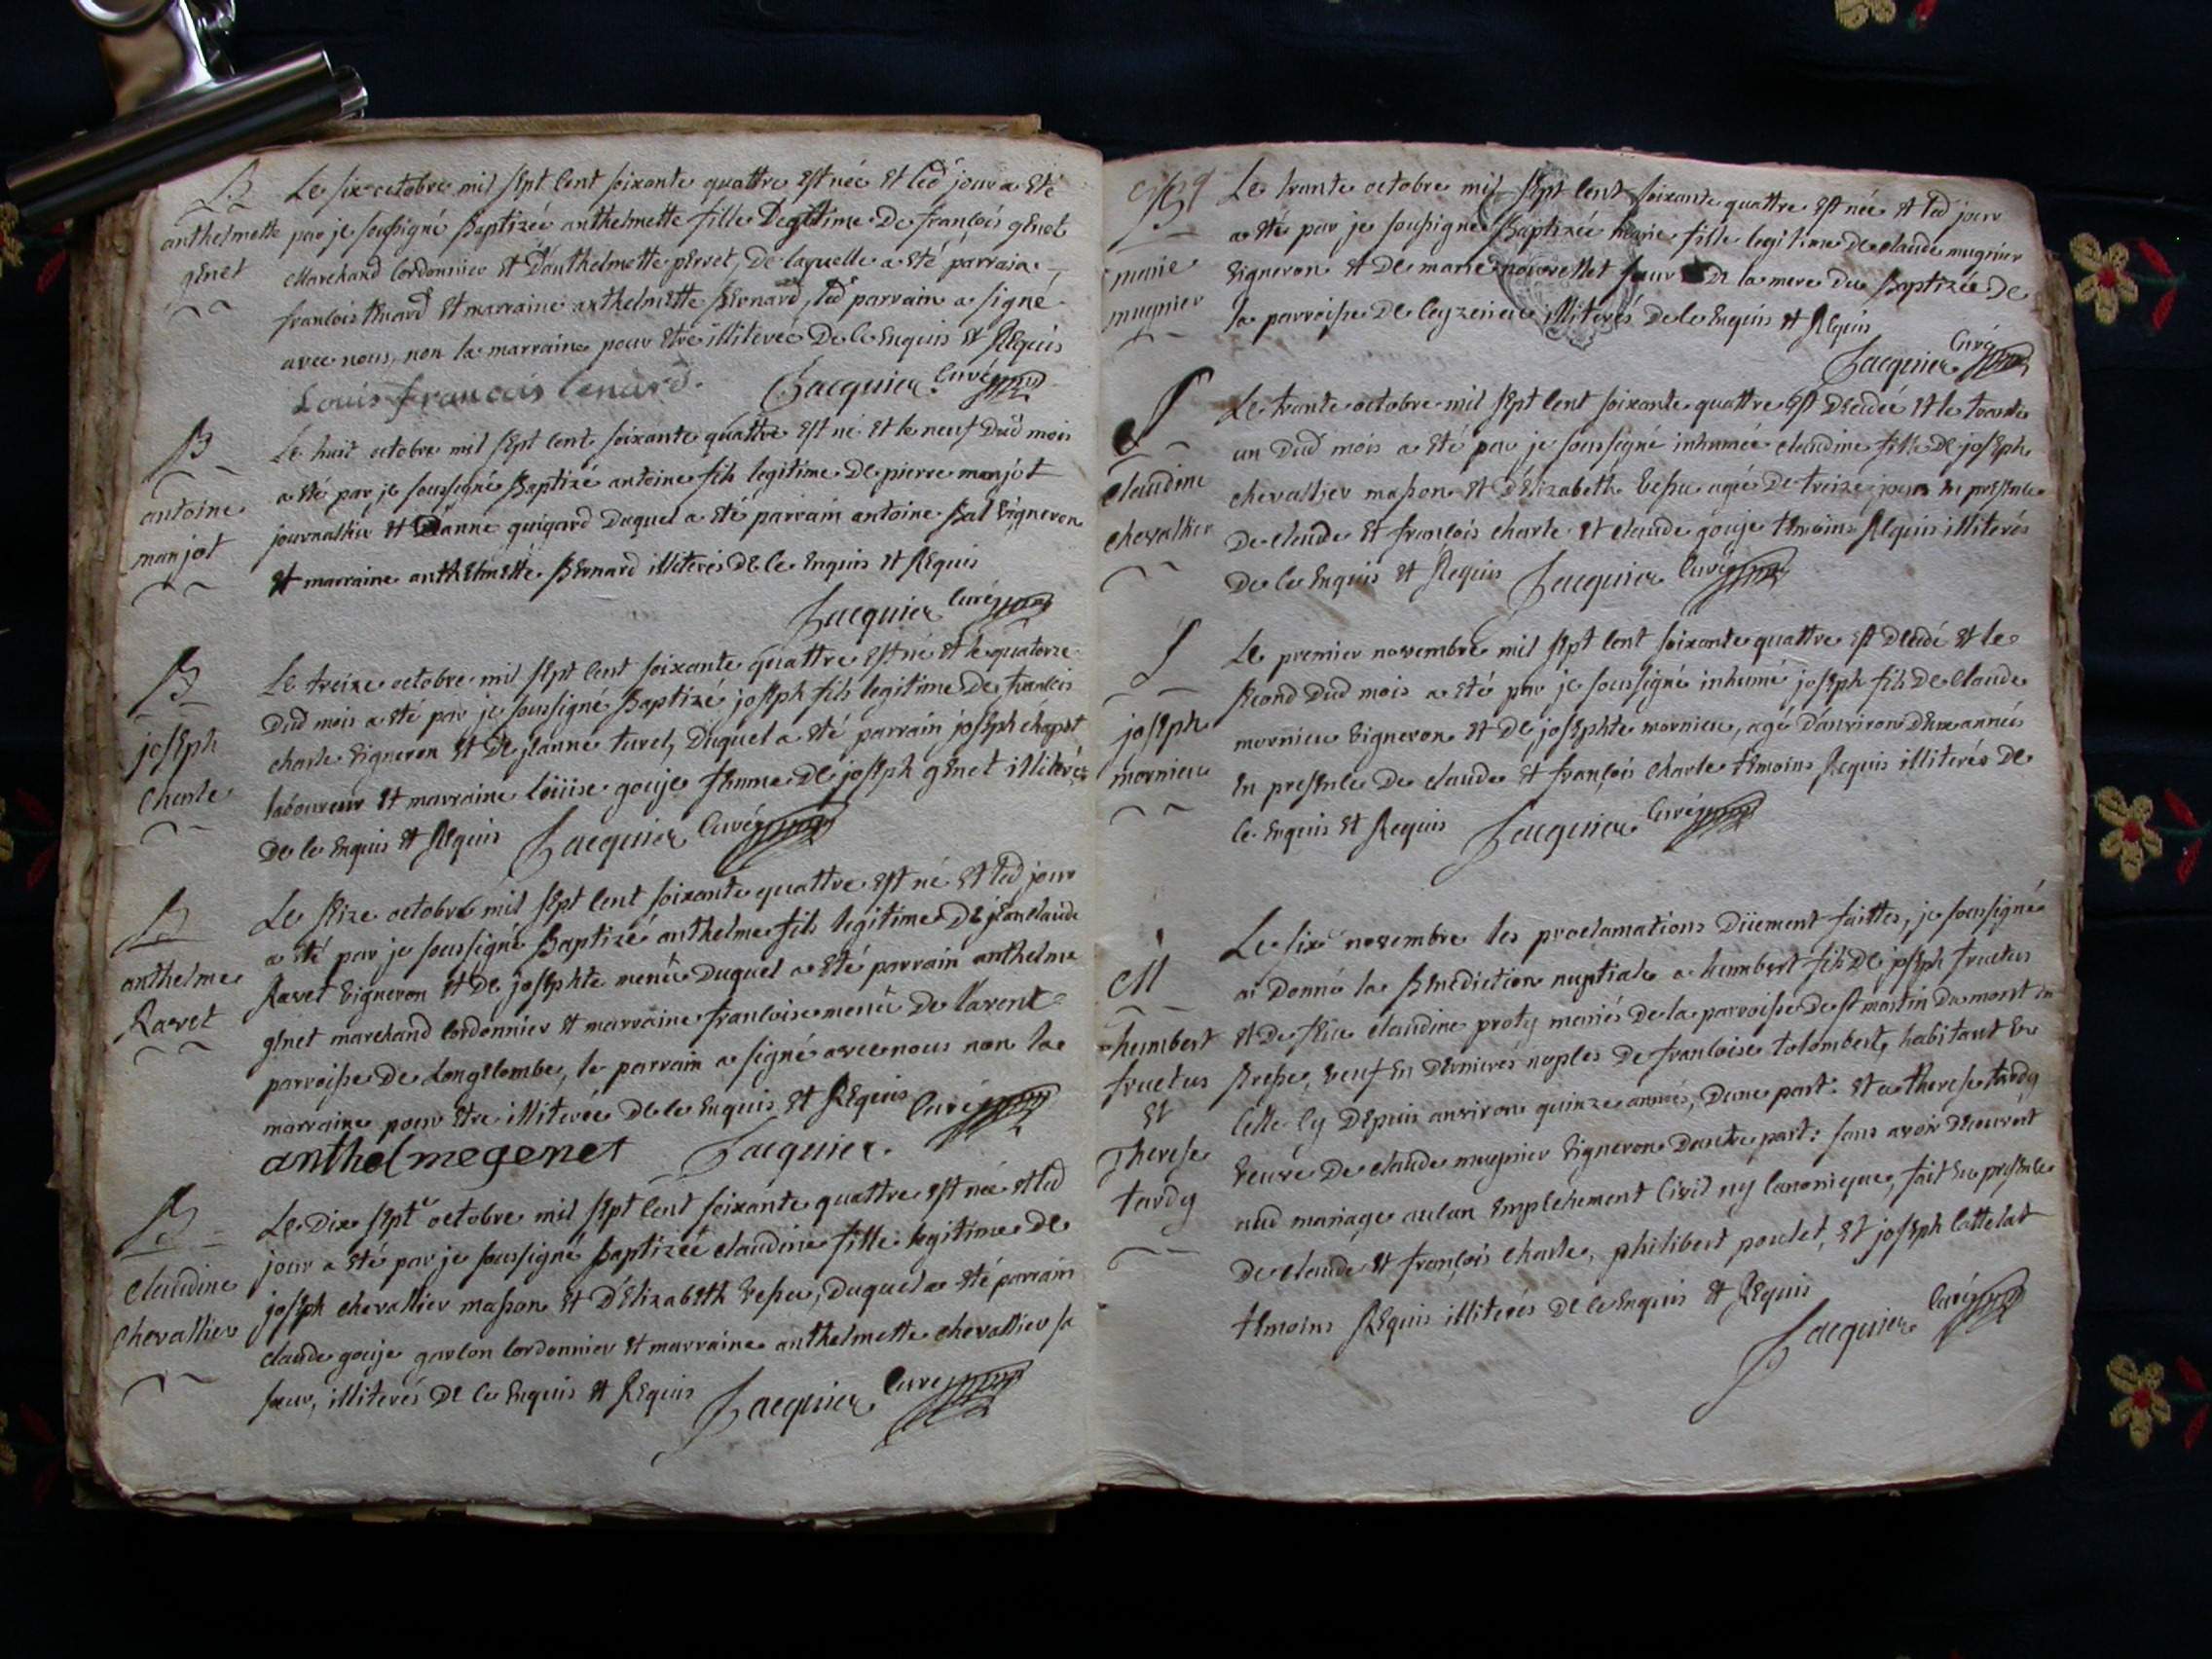 B
anthelmette
genet
Le six octobre mil sept cent soixante quattre est née et led jour a eté
par je soussigné Baptizée anthelmette fille Legitime De françois genet
Marchand Cordonnier et D'anthelmette perret, De laquelle a eté parrain
françois et marraine anthelmette Bernard, led parrain a signé
avec nous, non la marraine pour etre illiterée De ce Enquis et Requis
Louis francois lenard. Jacquier Curé
B
antoine
manjot
Le huit octobre mil sept cent soixante quattre est né et le neuf Dud mois
a eté par je soussigné Baptizé antoine fils legitime De pierre manjot
journallier et D'anne guigard Duquel a eté parrain antoine Bal Vigneron
et marraine anthelmette Bernard illiterés De ce Enquis et Requis
Jacquier Curé
B
joseph
Charle
Le treize octobre mil sept cent soixante quattre est né et le quatorze
Dud mois a eté par je soussigné Baptizé joseph fils legitime De francois
charle Vigneron et De jeanne turel, Duquel a eté parrain joseph
laboureur et marraine loüise gouje femme De joseph genet illiterés
De ce Enquis et Requis Jacquier Curé
B
anthelme
Ravet
Le seize octobre mil sept cent soixante quattre est né et led jour
a eté par je soussigné Baptizé anthelme fils legitime De jeanclaude
Ravet Vigneron et De josephte menû Duquel a eté parrain anthelme
genet marchand Cordonnier et marraine francoise menû De
parroisse De Longecombe, le parrain a signé avec nous non la
marraine pour etre illiterée De ce Enquis et Requis
anthelmegenet Jacquier Curé
B
Claudine
Chevallier
Le Dix sept octobre mil sept cent soixante quattre est née et led
jour a eté par je soussigné Baptizée claudine fille legitime De
joseph chevallier masson et D'Elizabeth Vessu, Duquel a eté parrain
claude gouje garcon Cordonnier et marraine anthelmette chevallier sa
sœur, illiterés De ce Enquis et Requis Jacquier Curé
B
marie
mugnier
Le trante octobre mil sept cent soixante quattre est née et led jour
a eté par je soussigné Baptizée marie fille legitime De claude mugnier
Vigneron et De marie sœur De la mere Du Baptizée De
la parroisse De Ceyzerieu illiterés De ce Enquis et Requis
Jacquier Curé
S
Claudine
chevallier
Le trante octobre mil sept cent soixante quattre est Decedée et le trante
un Dud mois a eté par je soussigné inhumée claudine fille De joseph
chevallier masson et D'Elizabeth Vessu agée De treize jours En presence
De claude et françois charle et claude gouje temoins Requis illiterés
De ce Enquis et Requis Jacquier Curé
S
joseph
mornieu
Le premier novembre mil sept cent soixante quattre est Decedé et le
second Dud mois a eté par je soussigné inhumé joseph fils De Claude
mornieu Vigneron et De josephte mornieu, agé D'anviron Deux années
En presence De claude et françois charle temoins Requis illiterés De
ce Enquis et Requis Jacquier Curé
M
humbert
fructus
Et
Therese
tardy
Le six novembre les proclamations Düement faittes, je soussigné
ai Donné la Benediction nuptiale a humbert fils De joseph fructus
et De feüe claudine proty mariés De la parroisse De st martin Du mont en
Bresse, Veuf En Dernieres nopces De francoise tolombert, habitant En
Celle cy Depuis anviron quinze années, D'une part: et a therese tardy
Veuve De claude mugnier Vigneron D'autre part: sans avoir Decouvert
aud mariage aucun Empechement Civil ny Canonique, fait En presence
De claude et françois charle, philibert poulet, et joseph Cottelat
temoins Requis illiterés De ce Enquis et Requis
Jacquier Curé